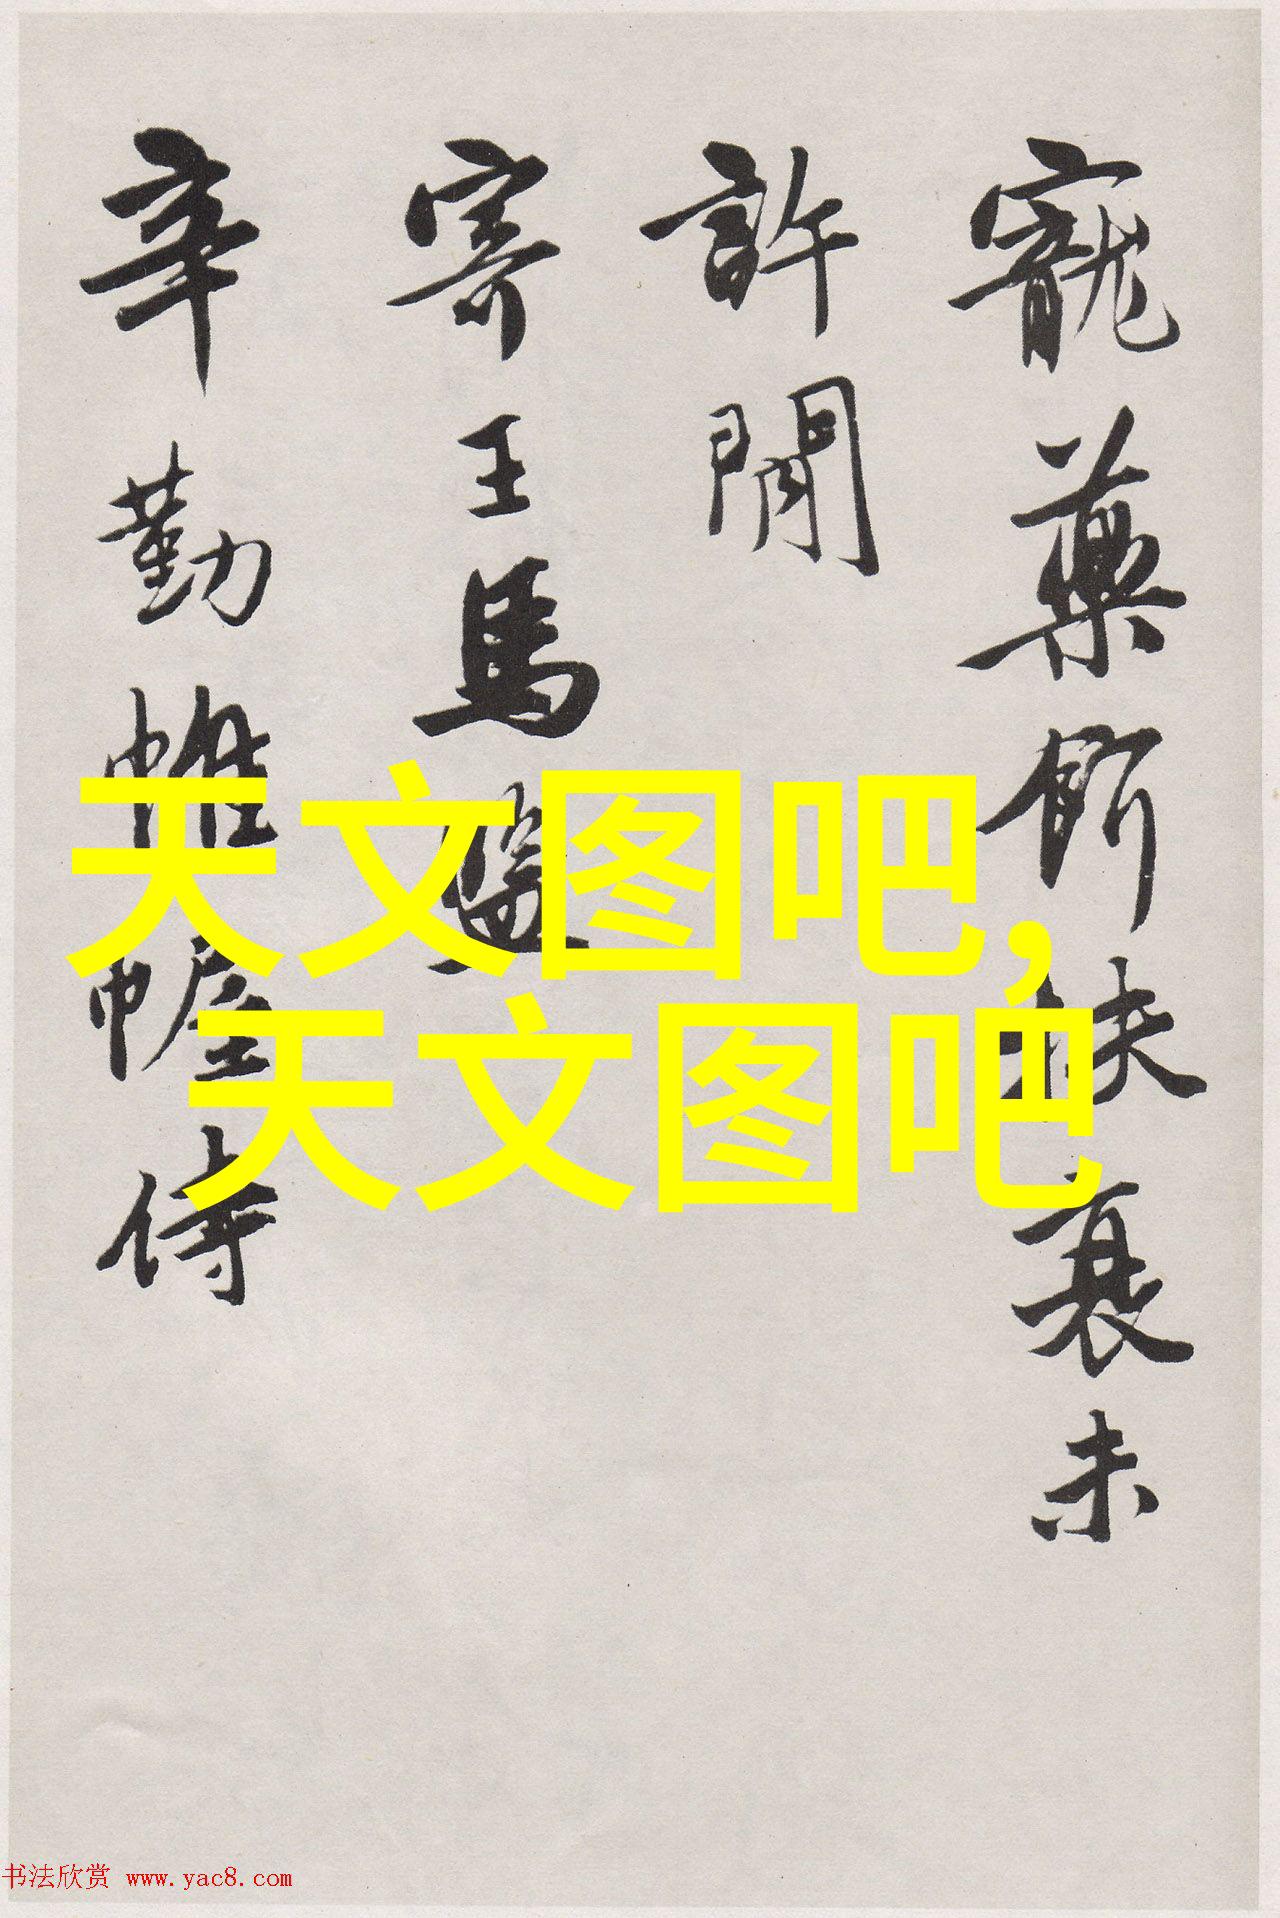 寵藥餌扶衰未
許閒
寄王馬
辛勤帷幄侍
天文图吧,
天文图吧
书法欣赏 www.yac8.com